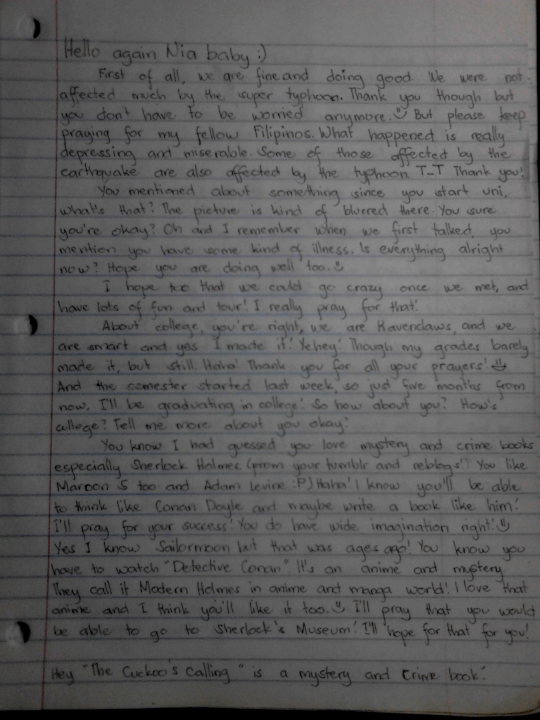 Hello again Nia baby :)
First of all, we are fine and doing good. We were not
affected much by the super typhoon. Thank you though but
you don't have to be worried anymore. But please keep
praying for my fellow Filipinos. What happened is really
depressing and miserable. Some of those affected by the
earthquake are also affected by the typhoon T_T Thank you!
You mentioned about something since you start uni,
what's that? The picture is kind of blurred there. You sure
you're okay? Oh and I remember when we first talked, you
mention you have some kind of illness. Is everything alright
now? Hope you are doing well too.
I hope too that we could go crazy once we met, and
have lots of fun and tour! I really pray for that!
About college, you're right, we are Ravenclaws, and we
are smart and yes I made it! Yehey! Though my grades barely
made it, but still. Haha! Thank you for all your prayers!
And the semester started last week so just five months from
now, I'll be graduating in college! So how about you? How's
college? Tell me more about you okay!
You know I had guessed you love mystery and crime books
especially Sherlock Holmes (from your tumblr and reblogs!) You like
Maroon 5 too and Adam Levine :P) Haha! I know you'll be able
to think like Conan Doyle and maybe write a book like him!
I'll pray for your success! You do have wide imagination right!
Yes I know Sailormoon but that was ages ago! You know you
have to watch "Detective Conan". It's an anime and mystery.
They call it Modern Holmes in anime and manga world! I love that
anime and I think you'll like it too. I'll pray that you would
be able to go to Sherlock's Museum! I'll hope for that for you!
Hey "The Cuckoo's Calling" is a mystery and crime book!